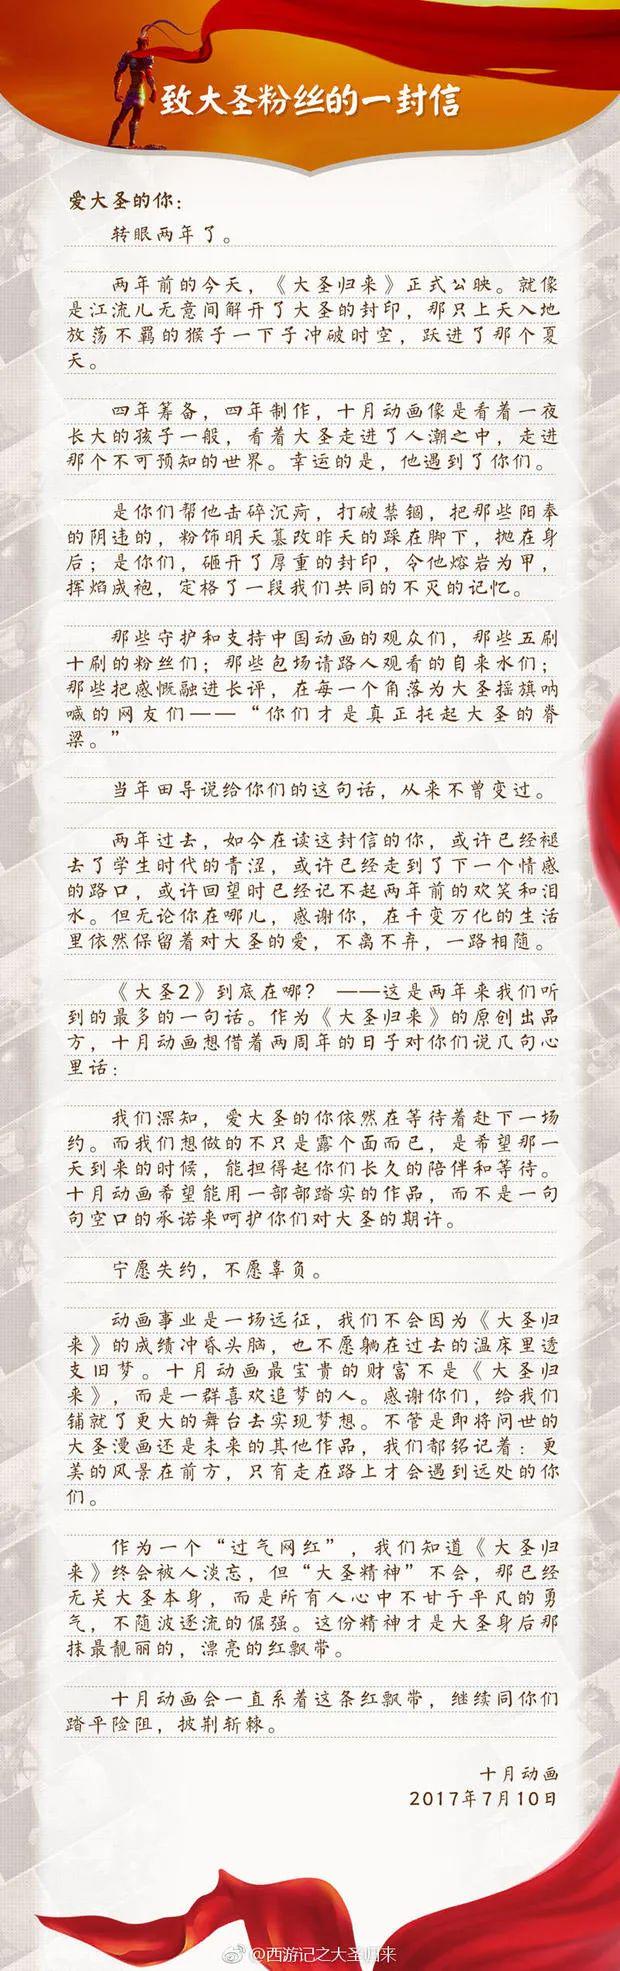 致大圣粉丝的一封信
爱大圣的你：
转眼两年了。
两年前的今天，《大圣归来》正式公映。就像
是江流儿无意间解开了大圣的封印，那只上天入地
放荡不羁的猴子一下子冲破时空，跃进了那个夏
天。
四年筹备，四年制作，十月动画像是看着一夜
长大的孩子一般，看着大圣走进了人潮之中，走进
那个不可预知的世界。幸运的是，他遇到了你们。
是你们帮他击碎沉疴，打破禁锢，把那些阳奉
的阴违的，粉饰明天篡改昨天的踩在脚下，抛在身
后；是你们，砸开了厚重的封印，令他熔岩为甲，
挥焰成袍，定格了一段我们共同的不灭的记忆。
那些守护和支持中国动画的观众们，那些五刷
十刷的粉丝们；那些包场请路人观看的自来水们；
那些把感慨融进长评，在每一个角落为大圣摇旗呐
喊的网友们——“你们才是真正托起大圣的脊
梁。”
当年田导说给你们的这句话，从来不曾变过。
两年过去，如今在读这封信的你，或许已经褪
去了学生时代的青涩，或许已经走到了下一个情感
的路口，或许回望时已经记不起两年前的欢笑和泪
水。但无论你在哪儿，感谢你，在千变万化的生活
里依然保留着对大圣的爱，不离不弃，一路相随。
《大圣2》到底在哪？ ——这是两年来我们听
到的最多的一句话。作为《大圣归来》的原创出品
方，十月动画想借着两周年的日子对你们说几句心
里话：
我们深知，爱大圣的你依然在等待着赴下一场
约。而我们想做的不只是露个面而已，是希望那一
天到来的时候，能担得起你们长久的陪伴和等待。
十月动画希望能用一部部踏实的作品，而不是一句
句空口的承诺来呵护你们对大圣的期许。
宁愿失约，不愿辜负。
动画事业是一场远征，我们不会因为《大圣归
来》的成绩冲昏头脑，也不愿躺在过去的温床里透
支旧梦。十月动画最宝贵的财富不是《大圣归
来》，而是一群喜欢追梦的人。感谢你们，给我们
铺就了更大的舞台去实现梦想。不管是即将问世的
大圣漫画还是未来的其他作品，我们都铭记着：更
美的风景在前方，只有走在路上才会遇到远处的你
们。
作为一个“过气网红”，我们知道《大圣归
来》终会被人淡忘，但“大圣精神”不会，那已经
无关大圣本身，而是所有人心中不甘于平凡的勇
气，不随波逐流的倔强。这份精神才是大圣身后那
抹最靓丽的，漂亮的红飘带。
十月动画会一直系着这条红飘带，继续同你们
踏平险阻，披荆斩棘。
十月动画
2017年7月10日
@西游记之大圣归来